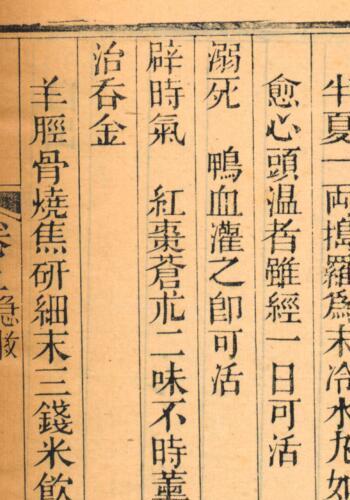 半夏一両搗羅為末冷水丸如
愈心頭温者雖經一日可活
溺死　鴨血灌之即可活
辟時氣　紅棗蒼朮二味不時薰
治呑金
羊脛骨燒焦研細末三錢米飲
急救